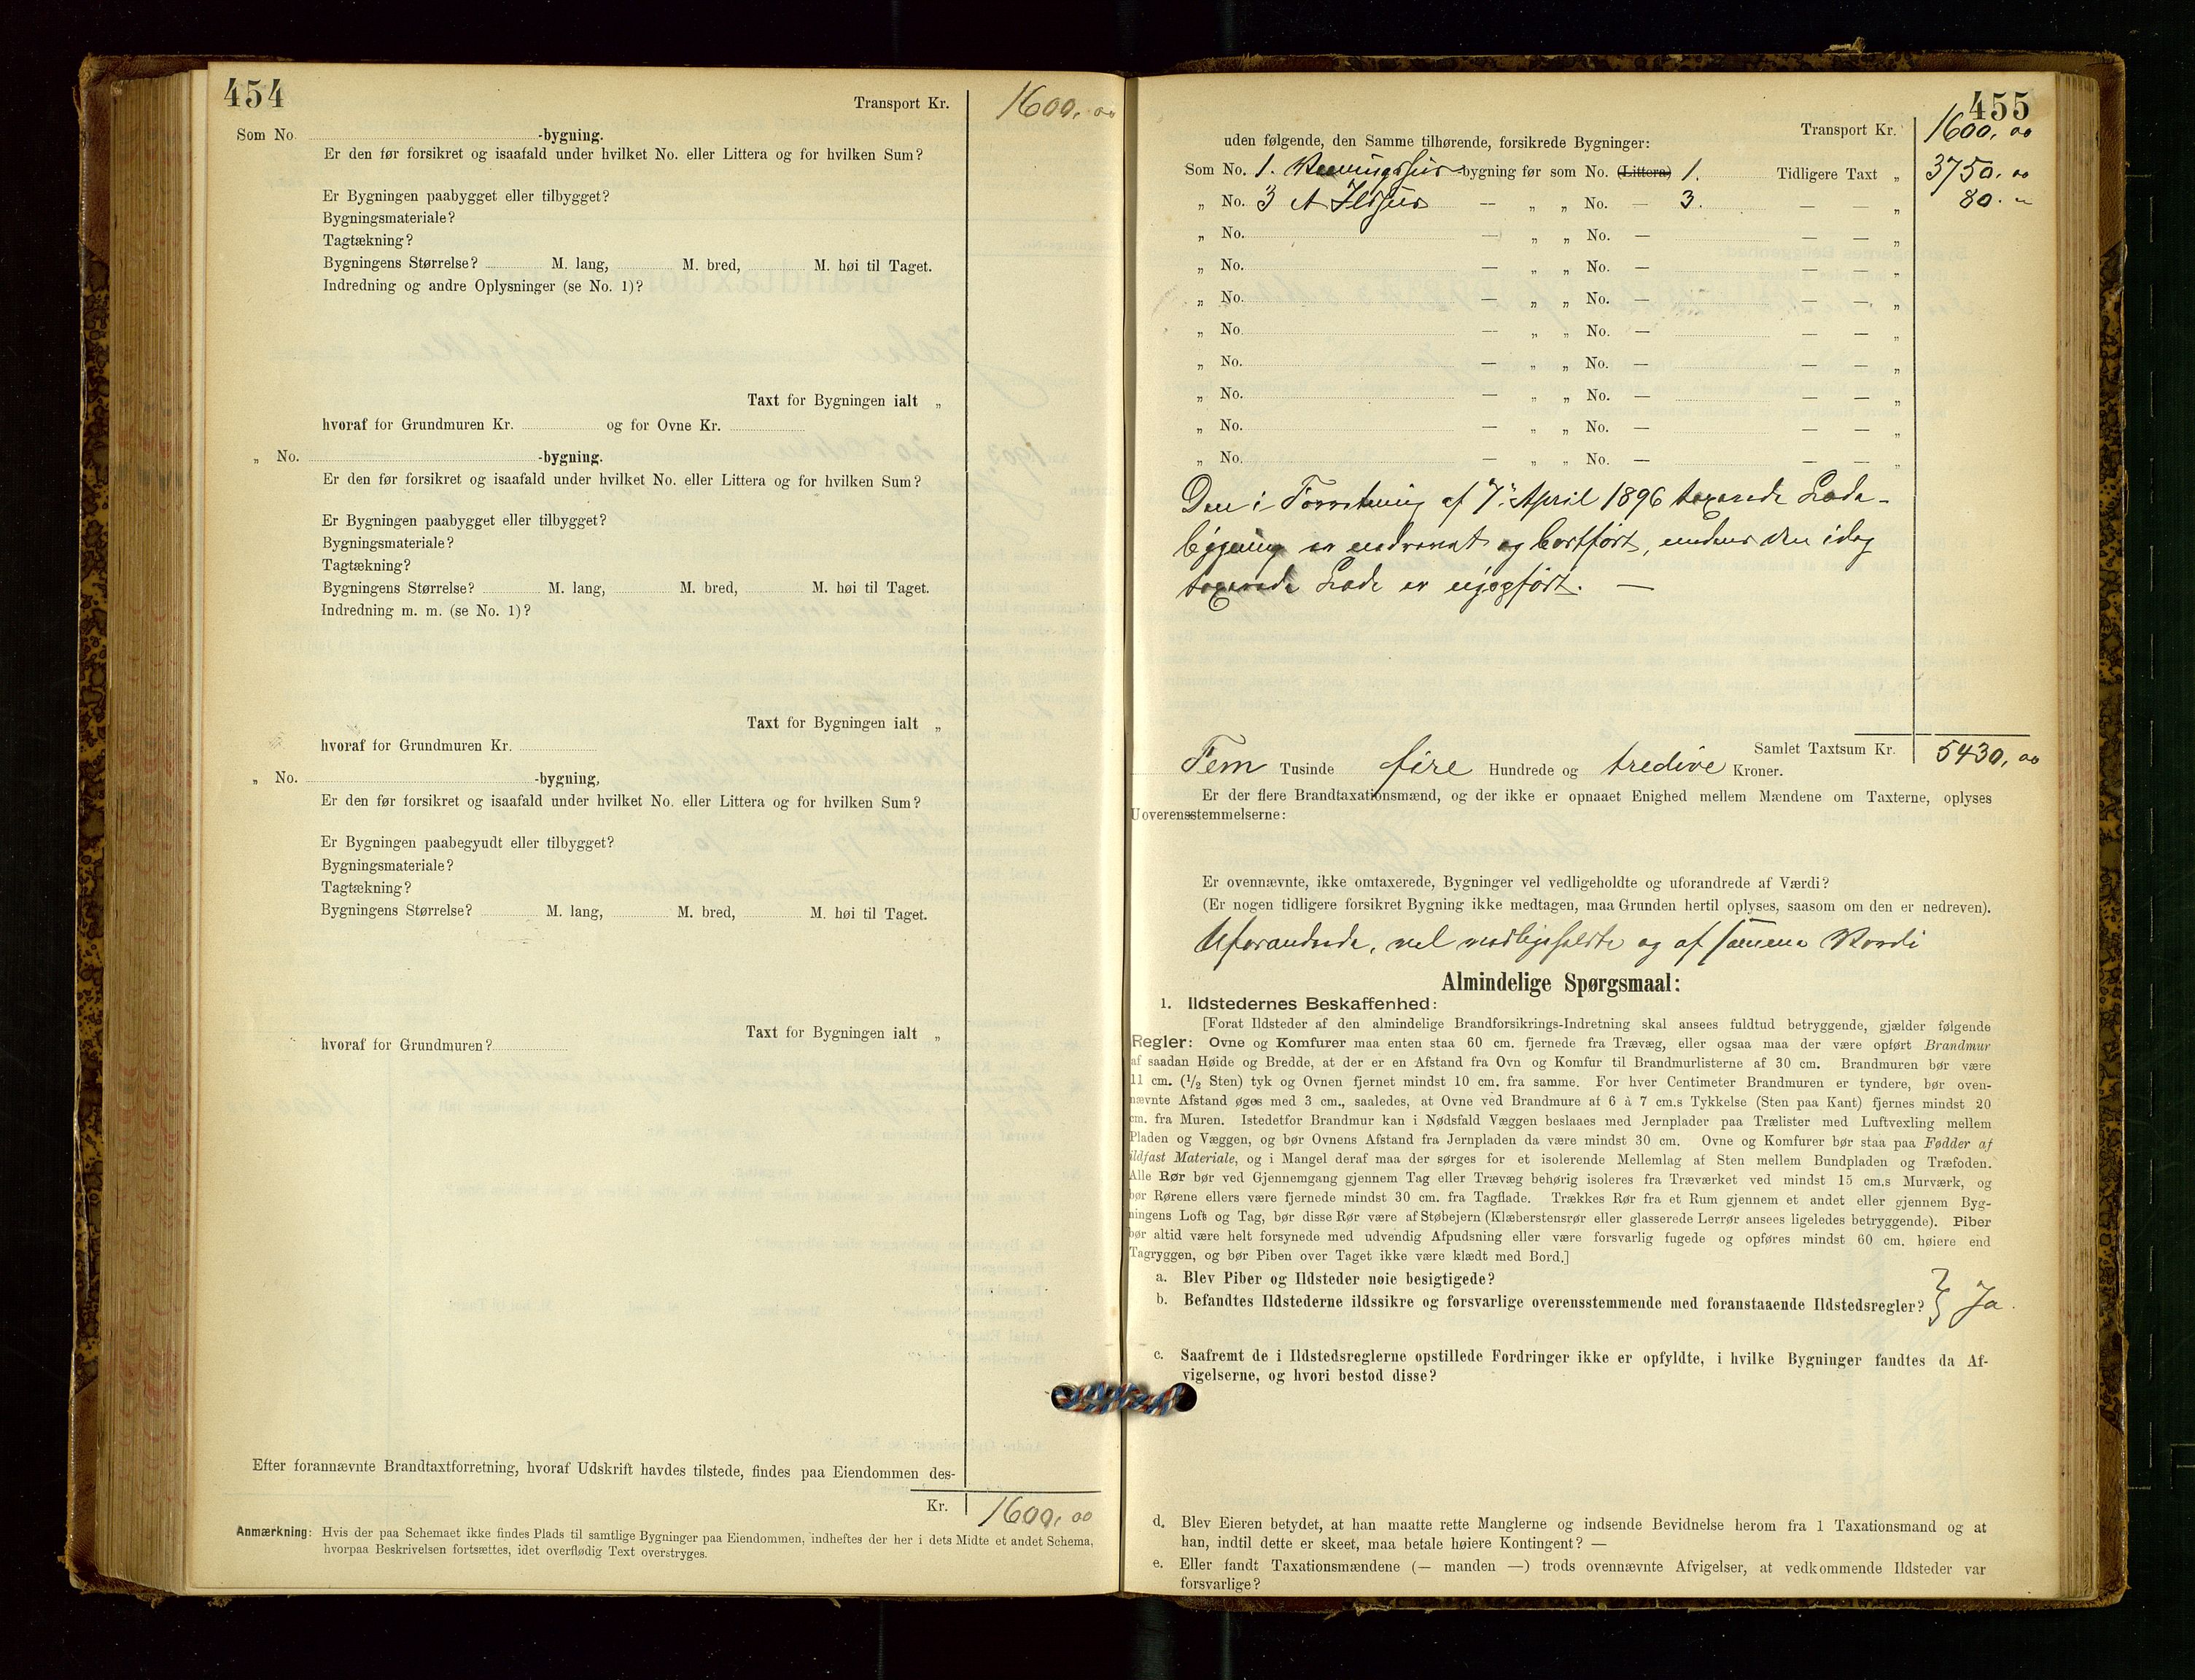 454
Transport Kr. 1600,00
Som No. -bygning.
Er den før forsikret og isaafald under hvilket No. eller Littera og for hvilken Sum?
Er Bygningen paabygget eller tilbygget?
Bygningsmateriale?
Tagtækning?
Bygningens Størrelse? M. lang, M. bred, M. høi til Taget.
Indredning og andre Oplysninger (se No. 1)?
Taxt for Bygningen ialt „
hvoraf for Grundmuren Kr. og for Ovne Kr.
„ No. -bygning.
Er den før forsikret og isaafald under hvilket No. eller Littera og for hvilken Sum?
Er Bygningen paabygget eller tilbygget?
Bygningsmateriale?
Tagtækning?
Bygningens Størrelse? M. lang, M. bred, M. høi til Taget.
Indredning m. m. (se No. 1)?
Taxt for Bygningen ialt „
hvoraf for Grundmuren Kr.
„ No. -bygning,
Er den før forsikret og isaafald under hvilket No. eller Littera og for hvilken Sum?
Er Bygningen paabegyudt eller tilbygget?
Bygningsmateriale?
Tagtækning?
Bygningens Størrelse? M. lang, M. bred, M. høi til Taget.
Taxt for Bygningen ialt „
hvoraf for Grundmuren?
Efter forannævnte Brandtaxtforretning, hvoraf Udskrift havdes tilstede, findes paa Eiendommen des-
Kr. 1600,00
Anmærkning: Hvis der paa Schemaet ikke findes Plads til samtlige Bygninger paa Eiendommen, indheftes der her i dets Midte et andet Schema,
hvorpaa Beskrivelsen fortsættes, idet overflødig Text overstryges.
455
Transport Kr. 1600,00
uden følgende, den Samme tilhørende, forsikrede Bygninger:
Som No. 1. Vaaningshus bygning før som No. (Littera) 1. Tidligere Taxt „ 3750,00
„ No. 3 A Ildhus — „ „ No. — 3. — — „ 80. "
„ No. — „ „ No. — — — „
„ No. — „ „ No. — — — „
„ No. — „ „ No. — — — „
„ No. — „ „ No. — — — „
„ No. — „ „ No. — — — „
„ No. — „ „ No. — — — „
„ No. — „ „ No. — — — „
„ No. — „ „ No. — — — „
Den i Forretning af 7. April 1896 taxerede Lade-
bygning er nedrevet og bortført, medens den idag
taxerede Lade er nyopført. —
Samlet Taxtsum Kr. 5430,00
Fem Tusinde fire Hundrede og tredive Kroner.
Er der flere Brandtaxationsmænd, og der ikke er opnaaet Enighed mellem Mændene om Taxterne, oplyses
Uoverensstemmelserne:
Er ovennævnte, ikke omtaxerede, Bygninger vel vedligeholdte og uforandrede af Værdi?
(Er nogen tidligere forsikret Bygning ikke medtagen, maa Grunden hertil oplyses, saasom om den er nedreven).
Uforandrede, vel vedligeholdte og af samme Værdi
Almindelige Spørgsmaal:
1. Ildstedernes Beskaffenhed:
[Forat Ildsteder af den almindelige Brandforsikrings-Indretning skal ansees fuldtud betryggende, gjælder følgende
Regler: Ovne og Komfurer maa enten staa 60 cm. fjernede fra Trævæg, eller ogsaa maa der være opført Brandmur
af saadan Høide og Bredde, at der er en Afstand fra Ovn og Komfur til Brandmurlisterne af 30 cm. Brandmuren bør være
11 cm. (1/2 Sten) tyk og Ovnen fjernet mindst 10 cm. fra samme. For hver Centimeter Brandmuren er tyndere, bør oven-
nævnte Afstand øges med 3 cm., saaledes, at Ovne ved Brandmure af 6 à 7 cm.s Tykkelse (Sten paa Kant) fjernes mindst 20
cm. fra Muren. Istedetfor Brandmur kan i Nødsfald Væggen beslaaes med Jernplader paa Trælister med Luftvexling mellem
Pladen og Væggen, og bør Ovnens Afstand fra Jernpladen da være mindst 30 cm. Ovne og Komfurer bør staa paa Fødder af
ildfast Materiale, og i Mangel deraf maa der sørges for et isolerende Mellemlag af Sten mellem Bundpladen og Træfoden.
Alle Rør bør ved Gjennemgang gjennem Tag eller Trævæg behørig isoleres fra Træværket ved mindst 15 cm.s Murværk, og
bør Rørene ellers være fjernede mindst 30 cm. fra Tagflade. Trækkes Rør fra et Rum gjennem et andet eller gjennem Byg-
ningens Loft og Tag, bør disse Rør være af Støbejern (Klæberstensrør eller glasserede Lerrør ansees ligeledes betryggende). Piber
bør altid være helt forsynede med udvendig Afpudsning eller være forsvarlig fugede og opføres mindst 60 cm. høiere end
Tagryggen, og bør Piben over Taget ikke være klædt med Bord.]
a. Blev Piber og Ildsteder nøie besigtigede?
b. Befandtes Ildstederne ildssikre og forsvarlige overensstemmende med foranstaaende Ildstedsregler? } Ja.
c. Saafremt de i Ildstedsreglerne opstillede Fordringer ikke er opfyldte, i hvilke Bygninger fandtes da Af-
vigelserne, og hvori bestod disse?
d. Blev Eieren betydet, at han maatte rette Manglerne og indsende Bevidnelse herom fra 1 Taxationsmand og at
han, indtil dette er skeet, maa betale høiere Kontingent? —
e. Eller fandt Taxationsmændene (— manden —) trods ovennævnte Afvigelser, at vedkommende Ildsteder var
forsvarlige?